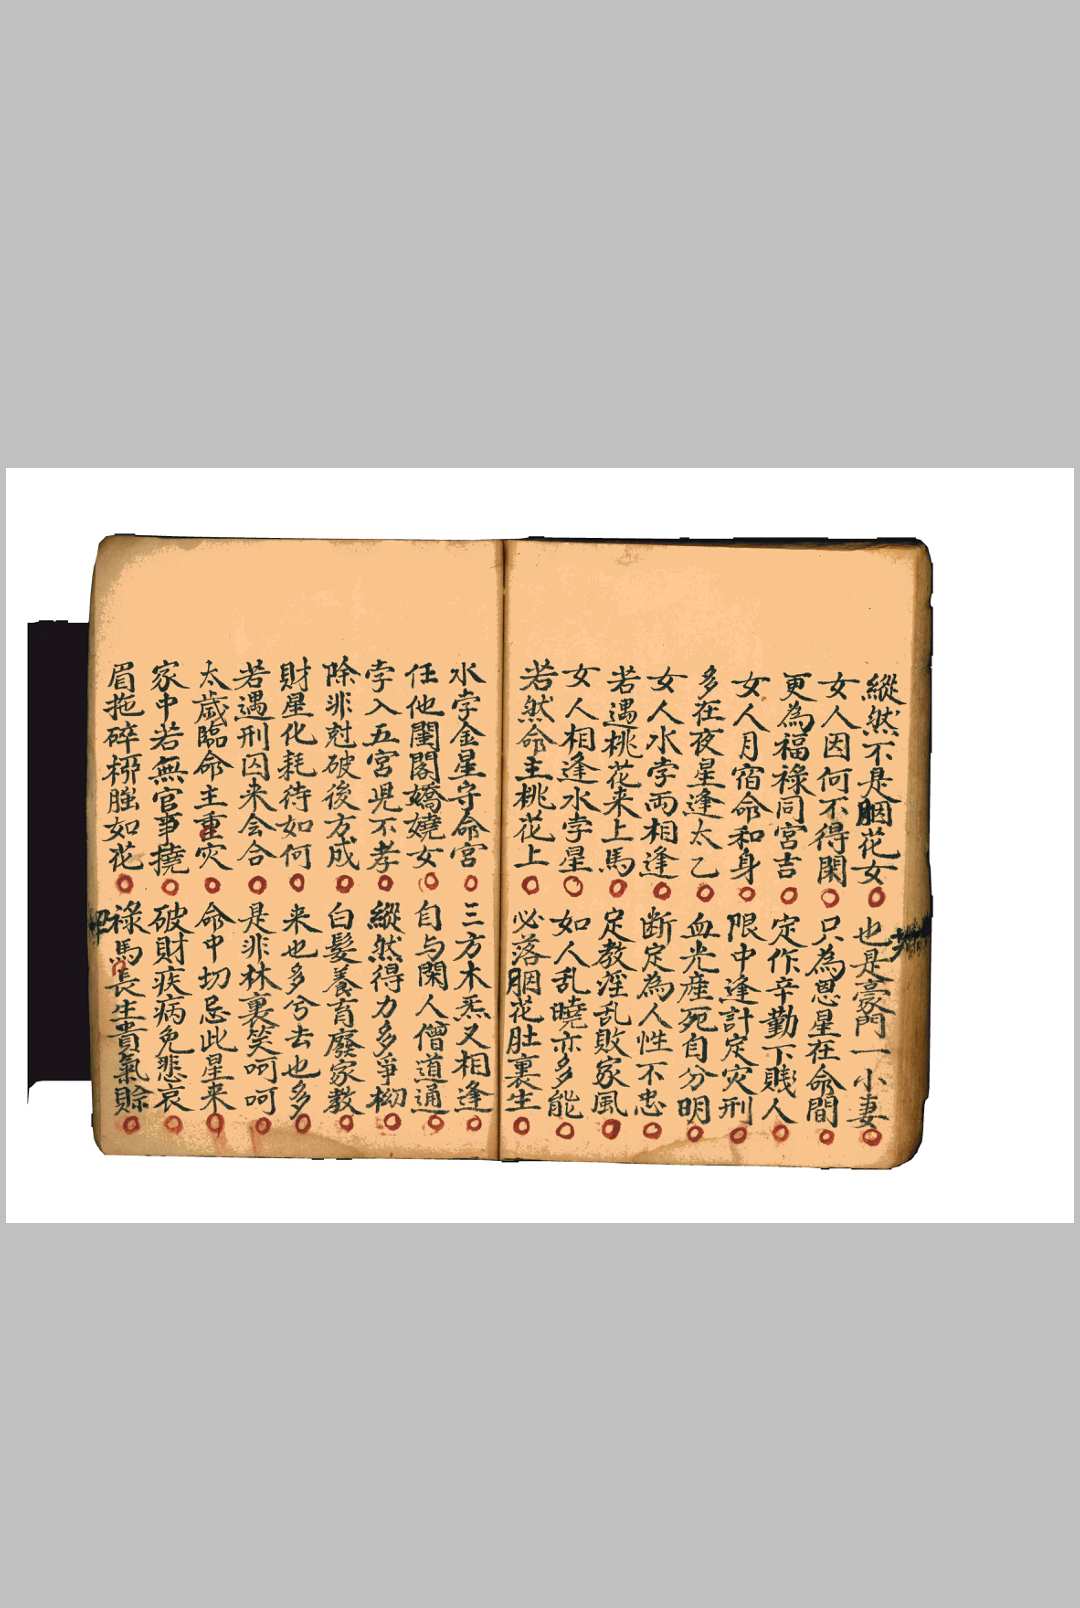 縱然不是胭花女 也是豪門一小妻
女人因何不得閑 只為恩星在命間
更為福祿同宮吉 定作辛勤下賤人
女人月宿命和身 限中逢計定灾刑
多在夜星逢太乙 血光產死自分明
女人水孛兩相逢 断定為人性不忠
若遇桃花来上馬 定教淫乱敗家風
女人相逢水孛星 如人乱曉亦多能
若然命主桃花上 必落胭花肚裏生
水孛金星守命宮 三方木炁又相逢
任他閨閣嬌嬈女 自与閑人僧道通
孛入五宮児不孝 縱然得力多爭拗
除非尅破後方成 白髮養育廢家教
財星化耗待如何 来也多兮去也多
若遇刑囚来会合 是非林裏笑呵呵
太歲臨命主重灾 命中切忌此星来
家中若無官事撓 破財疾病免悲哀
眉拖碎柳臉如花 祿馬長生貴氣賒